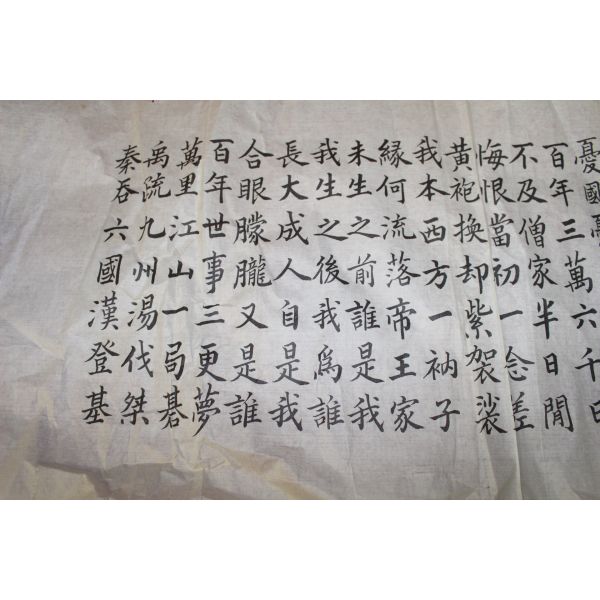 憂國憂
百年三萬六千日
不及僧家半日閒
悔恨當初一念差
黃袍換却紫袈裟
我本西方一衲子
緣何流落帝王家
未生之前誰是我
我生之後我爲誰
長大成人自是我
合眼朦朧又是誰
百年世事三更夢
萬里江山一局碁
禹疏九州湯伐桀
秦吞六國漢登基